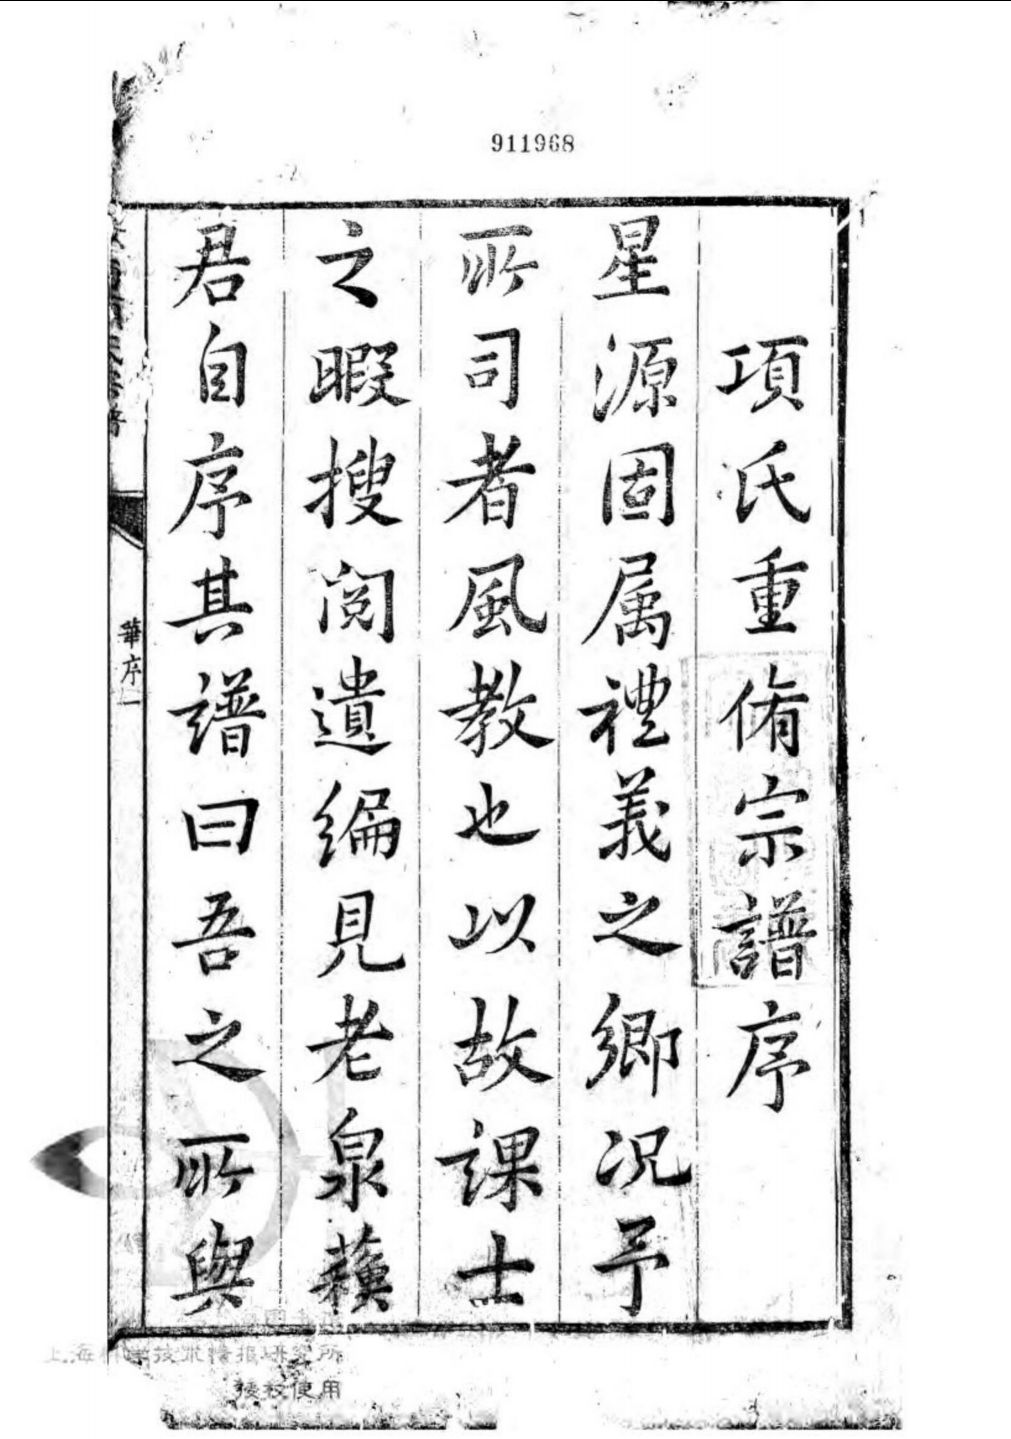 911968
項氏重脩宗譜序
星源固属禮義之鄉况予
所司者風教也以故課士
之暇搜閲遺編見老泉蘓
君自序其譜曰吾之所與
序一
上海科学技术情报研究所
授权使用